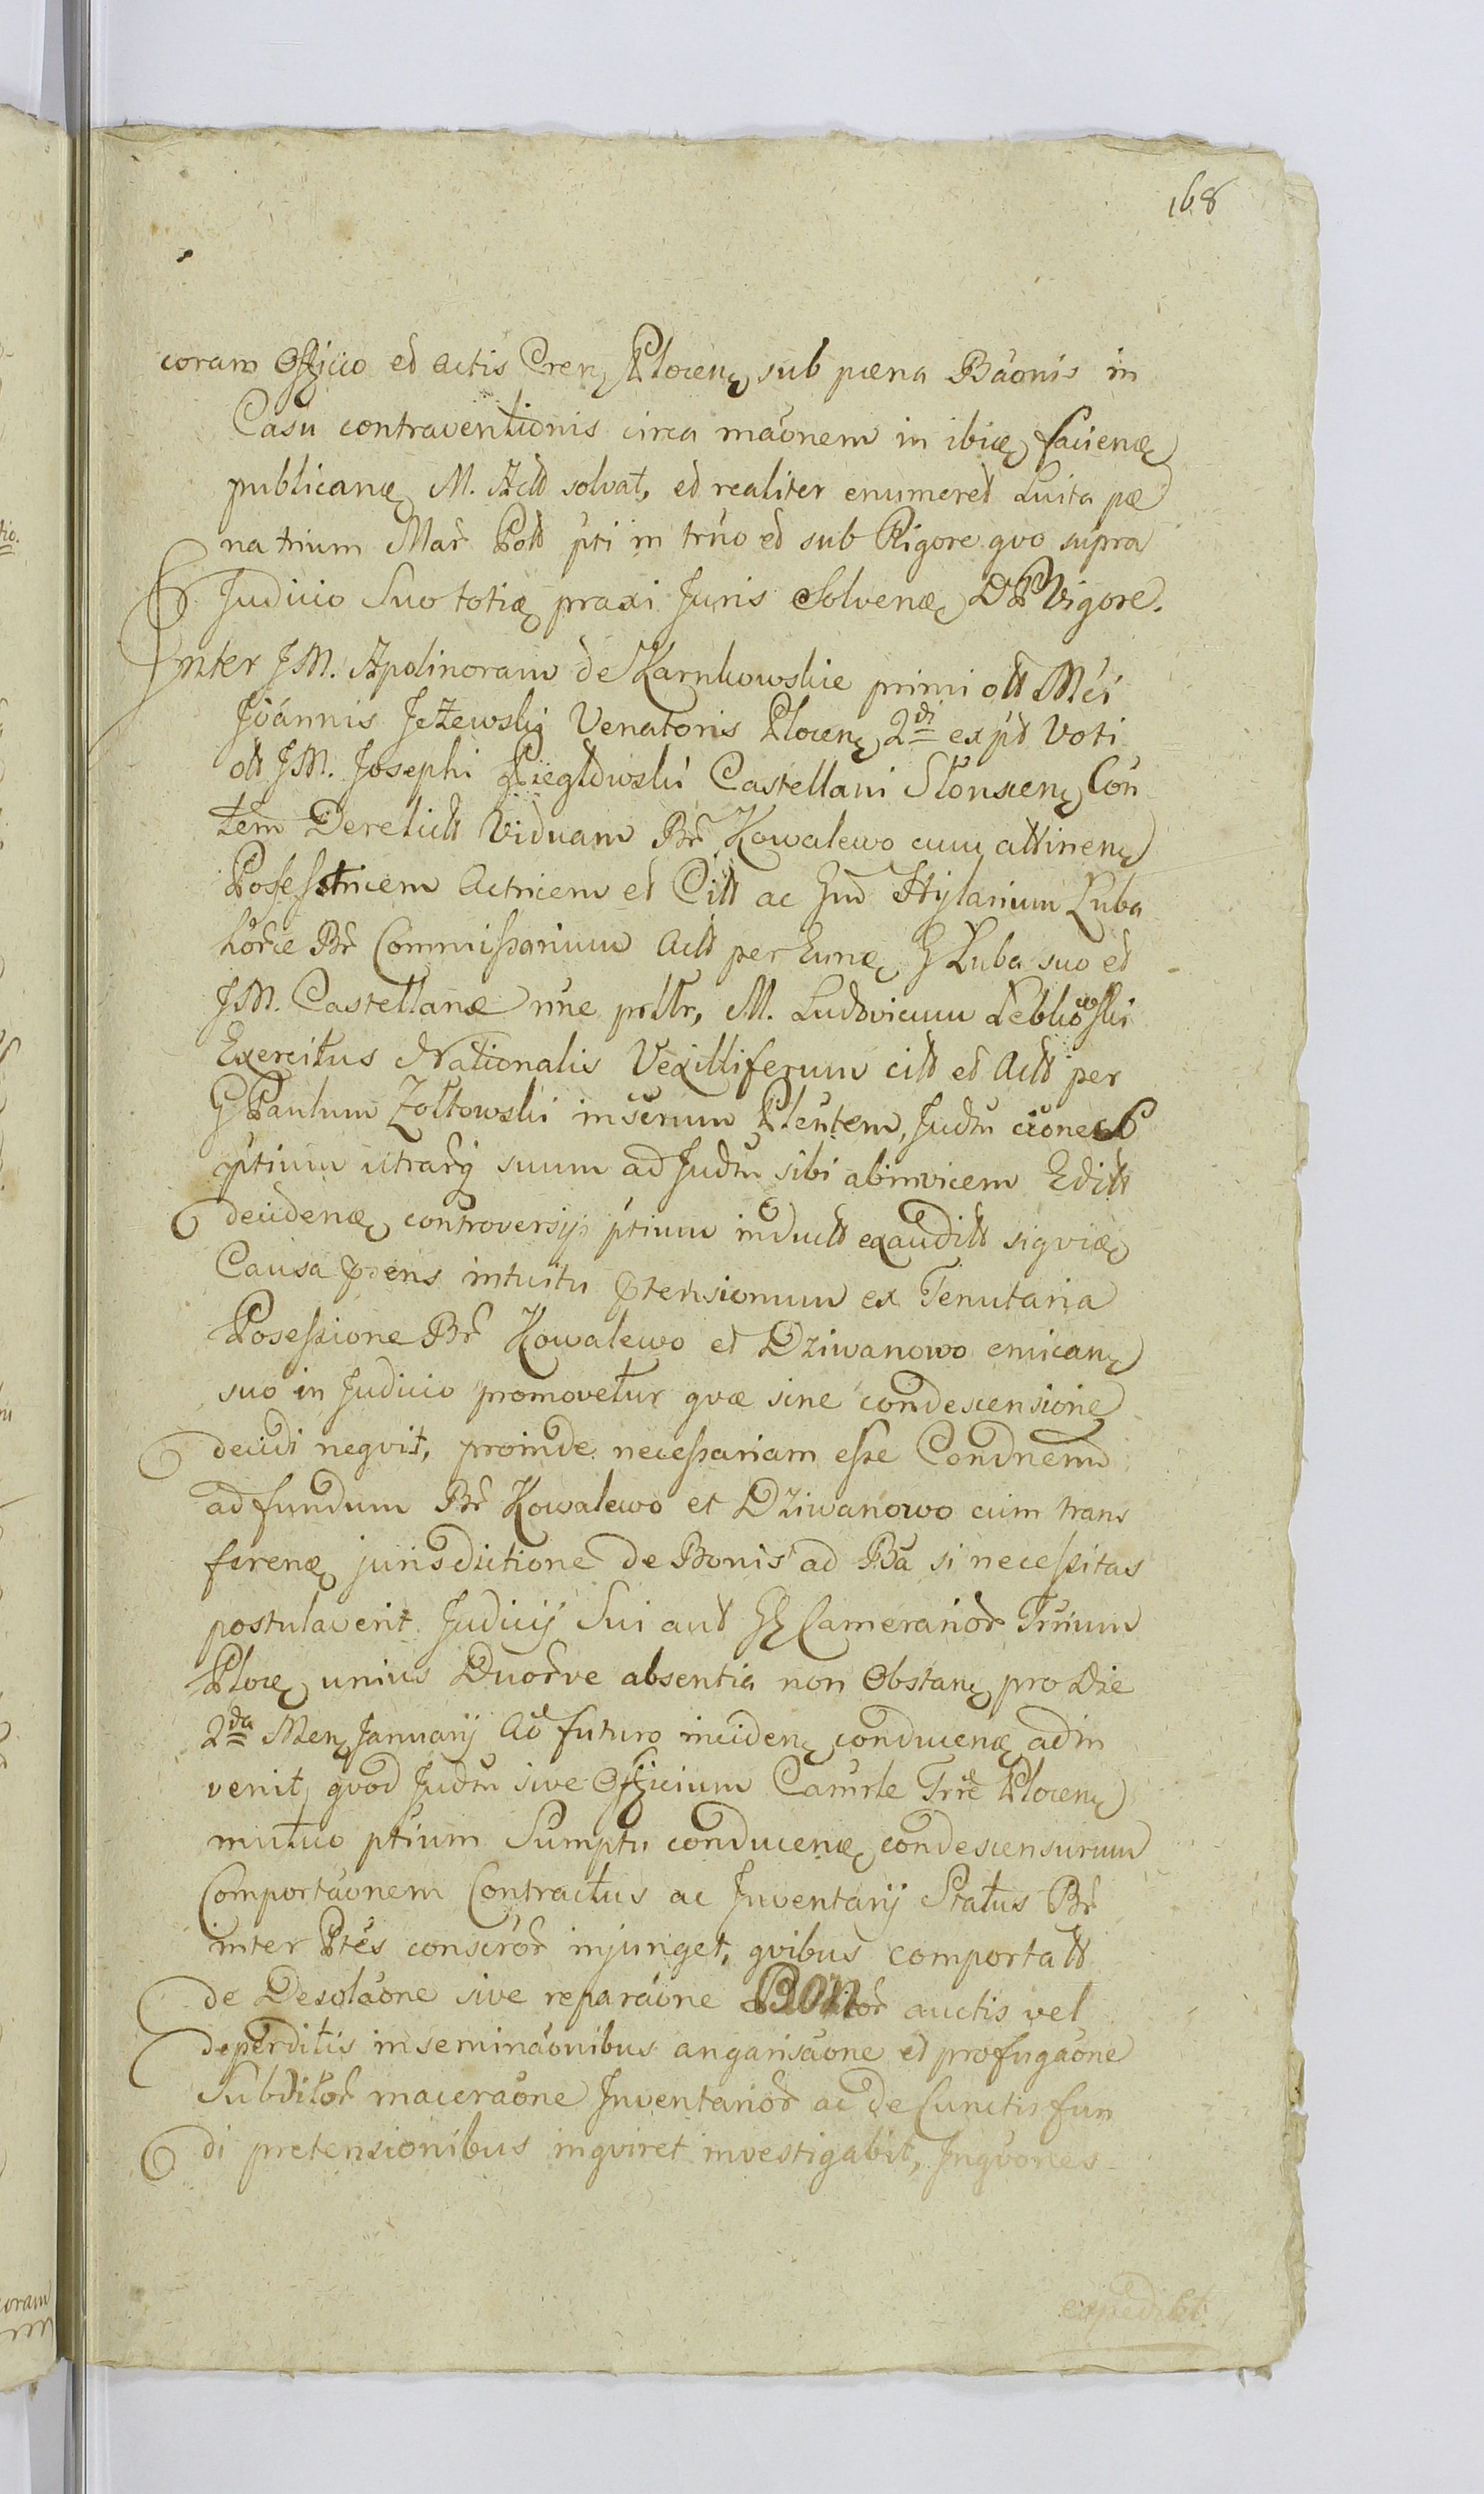 168
coram Officio et actis Cren Plocen sub pœna Bãonis in
Casu contraventionis circa mãonem in ibiæ facienæ
publicanæ M. Actt solvat, et realiter enumeret Luita pœ
na trium Mar Poltt pti in trno et sub Rigore qvo supra
Judicio Suo totiæ praxi Juris Solvenæ D P Vigore.
Inter J M. Apolinoram de Karnkowskie primi ott Mci
Joannis Jeżewskj Venatoris Plocen 2di ex ptt Voti
ott J M. Josephi Zieglowski Castellani Słonscen Con
tem Derelictt Viduam Br Kowalewo cum attinen
Posesstricem Actricem et Citt ac Gnd Hylarium Luba
horie Br Commissarium Actt per Eunæ G Luba suo et
J M. Castellanæ nne prttr, M. Ludovicum Lebkowski
Exercitus Nationalis Vexilliferum citt et Actt per
G Paulum Zołtowski inserum Plentem, Judm cione
ptium utrarq suum ad Judm sibi abinvicem Editt
decidenæ controversijs ptium inductt exauditt siqviæ
Causa pñs intuitu ptensionum ex Tenutaria
Posessione Br Kowalewo et Dziwanowo emican
suo in Judicio promovetur qvæ sine condescensione
decidi neqvit, proinde necessariam esse Condnem
ad fundum Br Kowalewo et Dziwanowo cum trans
ferenæ jurisdictione de Bonis ad Ba si necessitas
postulaverit Judicij Sui aut GG Camerarior Trium
Ploce unius Duorve absentia non Obstan pro Die
2da Men Januarij Ao futuro inciden conducenæ adin
venit, qvod Judm sive Officium Camrle Trre Plocen
mutuo ptium Sumptu conducenæ condescensurum
Comportãonem Contractus ac Inventarij Status Br
inter Ptes conscror injunget, qvibus comportatt
de Desolãone sive reparãone Bonor auctis vel
deperditis inseminãonibus angarisãone et profugãone
Subditor macerãone Inventarior ac de Cunctis fun
di pretensionibus inqviret investigabit, Inqvones
expediet